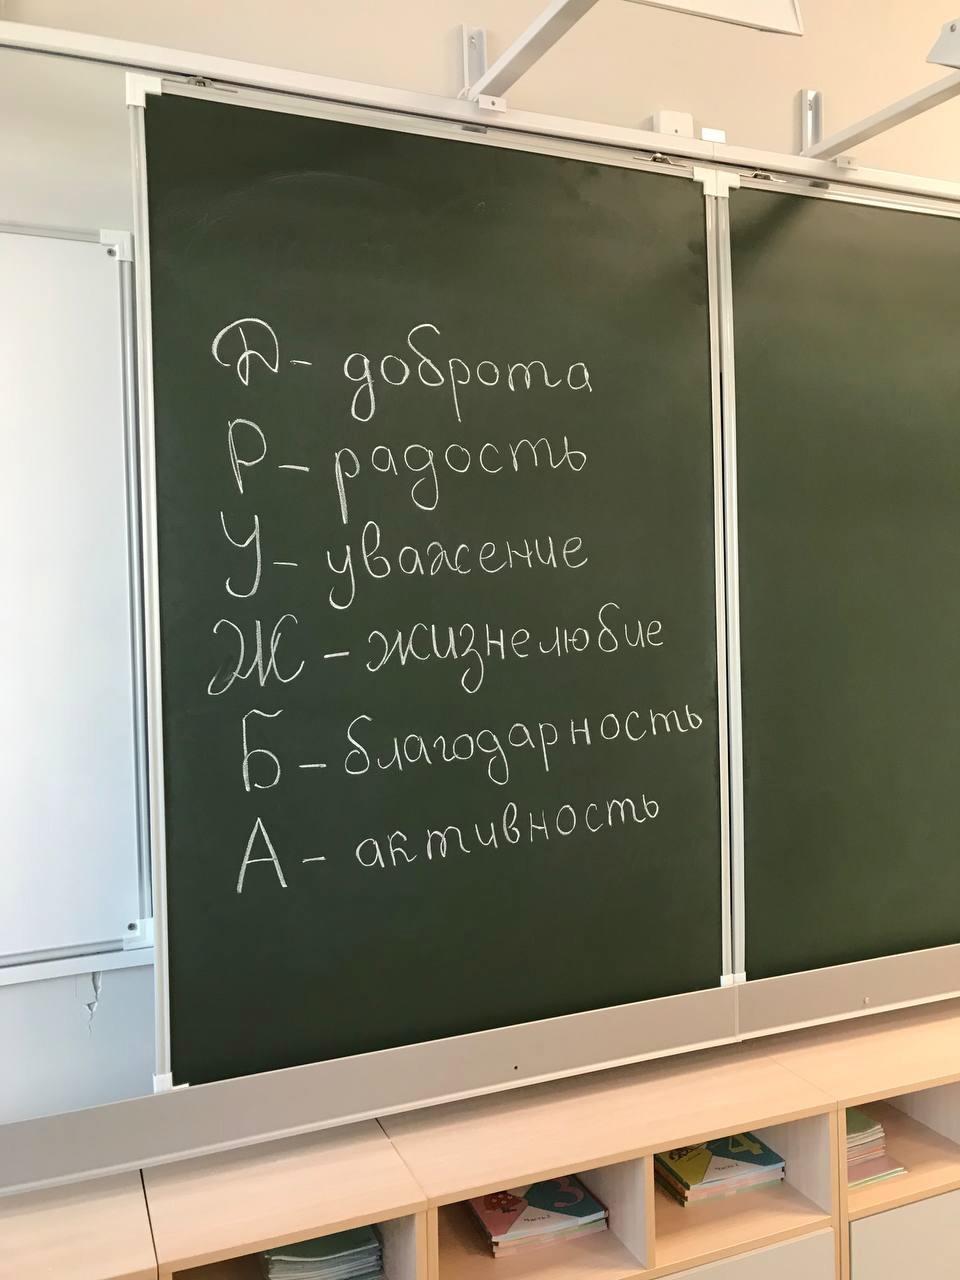 Д - доброта
Р - радость
У - уважение
Ж - жизнелюбие
Б - благодарность
А - активность
4
Часть 2
3